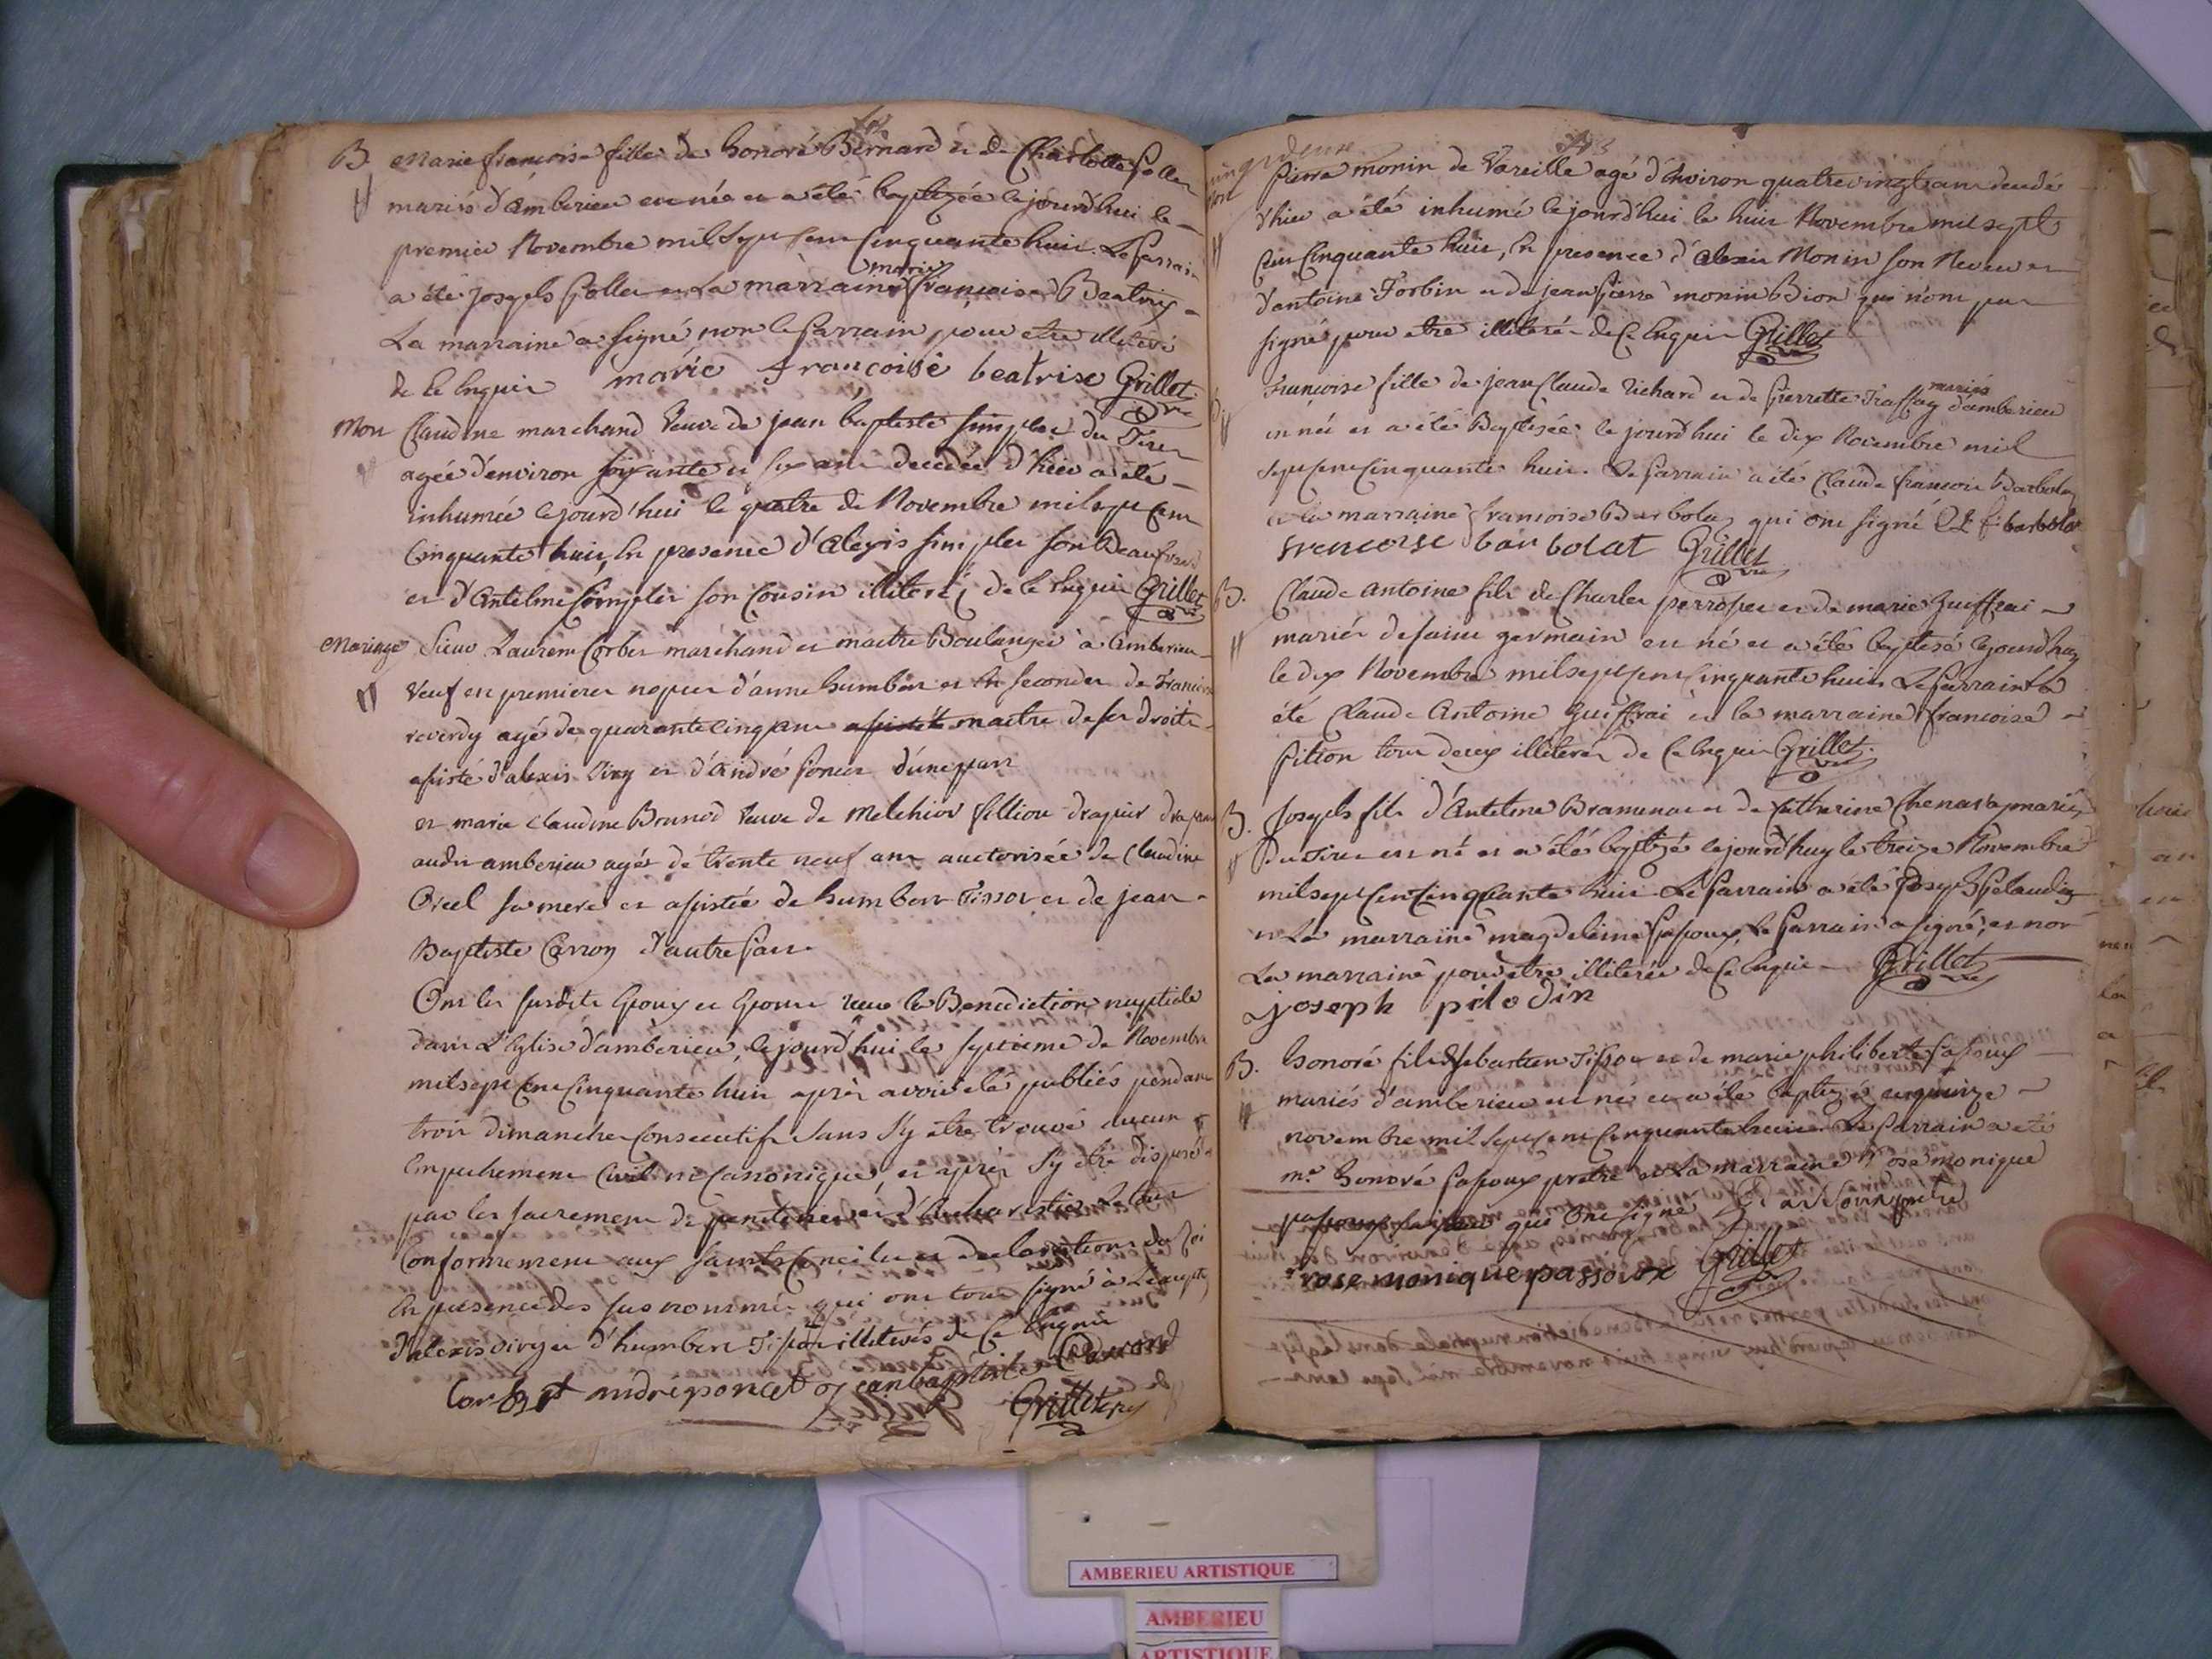 B. Marie francoise fille de honoré Bernard et de Charlotte Goller
mariés d'amberieu est née et a été baptizée cejourd'hui le
premier Novembre mil sept cent cinquante huit. Le parrain
a été joseph Goller et La marraine marie francoise Beatrix
La marraine a signé non le parrain pour etre illiteré
de ce enquis marie françoise beatrise Grillet vic
Mort Claudine marchand veuve de jean baptiste simplet du Tiret
agée d'environ soixante et six ans decedée d'hier a été
inhumée cejourd'hui le quatre de Novembre mil sept cent
Cinquante huit, En presence d'Alexis simplet son Beaufrere
et d'Antelme simplet son Cousin illiterés de ce Enquis Grillet vic
Mariage Sieur Laurent Corbet marchand et maitre Boulanger à Amberieu
Veuf en premieres nopces d'anne humbert et En secondes de Francoise
reverdy agé de quarante cinq ans maitre de ses droits
assisté d'alexis Diry et d'André poncet d'une part
et marie Claudine Brunod veuve de Melchior fillion drapier drapant
audit amberieu agée de trente neuf ans auctorisée de Claudine
Orcel sa mere et assistée de humbert Tissot et de jean
Baptiste Carron d'autre part
Ont les susdits Epoux et Epouse recu la Benediction nuptiale
dans L'Eglise d'amberieu, cejourd'hui le septieme de Novembre
mil sept cent cinquante huit après avoir été publiés pendant
trois dimanches consecutifs sans s'y etre trouvé aucun
Empechement Civil ni Canonique, et après s'y etre disposés
par les sacremens de penitence et d'Eucharistie Le tout
Conformement aux saints Conciles et declarations du Roi
En presence des susnommés qui ont tous signé à L'exception
d'alexis diry et d'humbert Tissot illiterés de Ce Enquis
Corbet andre poncet jean baptiste Carond
Grillet vic
Pierre monin de Vareille agé d'environ quatrevingt ans decedé
d'hier a été inhumé cejourd'hui le huit Novembre mil sept
cent cinquante huit, En presence d'alexis Monin son Neveu et
d'antoine Forbin et de jean pierre monin Bion qui n'ont pas
signé pour etre illiterés de Ce Enquis Grillet vic
Françoise fille de jean Claude Richard et de Pierrette Traffay mariés d'amberieu
est née et a été Baptisée cejourd'hui le dix Novembre mil
sept cent cinquante huit. Le parrain a été Claude francois Barbolat
et la marraine francoise Barbolat qui ont signé Cl f. barbolat
francoise barbolat Grillet vic
B. Claude Antoine fils de Charles perroset et de marie Guiffrai
mariés de saint germain est né et a été baptisé cejourd'huy
le dix Novembre mil sept cent cinquante huit Le parrain a
été Claude Antoine Guiffrai et la marraine francoise
pition tous deux illiterés de Ce Enquis Grillet vic
B. Joseph fils d'Antelme Bramenat et de Catherine Chenavay mariés
du Tiret est né et a été baptizé cejourd'huy le treize Novembre
mil sept cent cinquante huit Le parrain a été joseph pelaudin
et La marraine magdeleine passoux, Le parrain a signé, et non
La marraine pour etre illiterée de Ce Enquis Grillet vic
joseph pelodin
B. honoré fils de sebastien Tissot et de marie philiberte passoux
mariés d'amberieu est né et a été baptizé ce quinze
novembre mil sept cent cinquante huit Le parrain a été
mre honoré passoux pretre et La marraine Rose monique
passoux qui ont signé passoux pretre
rose monique passoux Grillet vic
AMBERIEU ARTISTIQUE
AMBERIEU
ARTISTIQUE